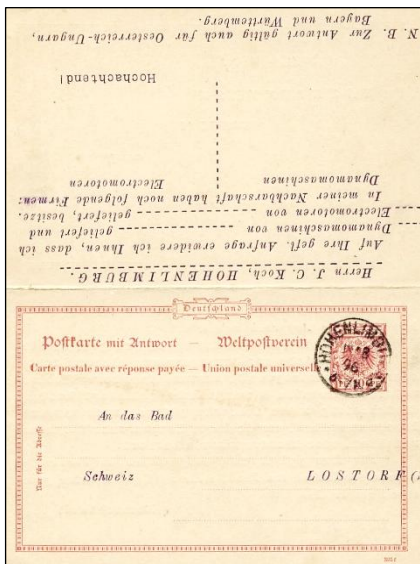 Herrn J. C. Koch, HOHENLIMBURG.
Auf Ihre gefl. Anfrage erwidere ich Ihnen, dass ich
Dynamomaschinen von geliefert und
Electromotoren von geliefert, besitze.
In meiner Nachbarschaft haben noch folgende Firmen:
Dynamomaschinen Electromotoren
Hochachtend!
N. B. Zur Antwort gültig auch für Oesterreich-Ungarn,
Bayern und Württemberg.
Deutschland
Postkarte mit Antwort — Weltpostverein
Carte postale avec réponse payée — Union postale universelle
HOHENLIMBURG
96
An das Bad
Schweiz LOSTORF
Nur für die Adresse